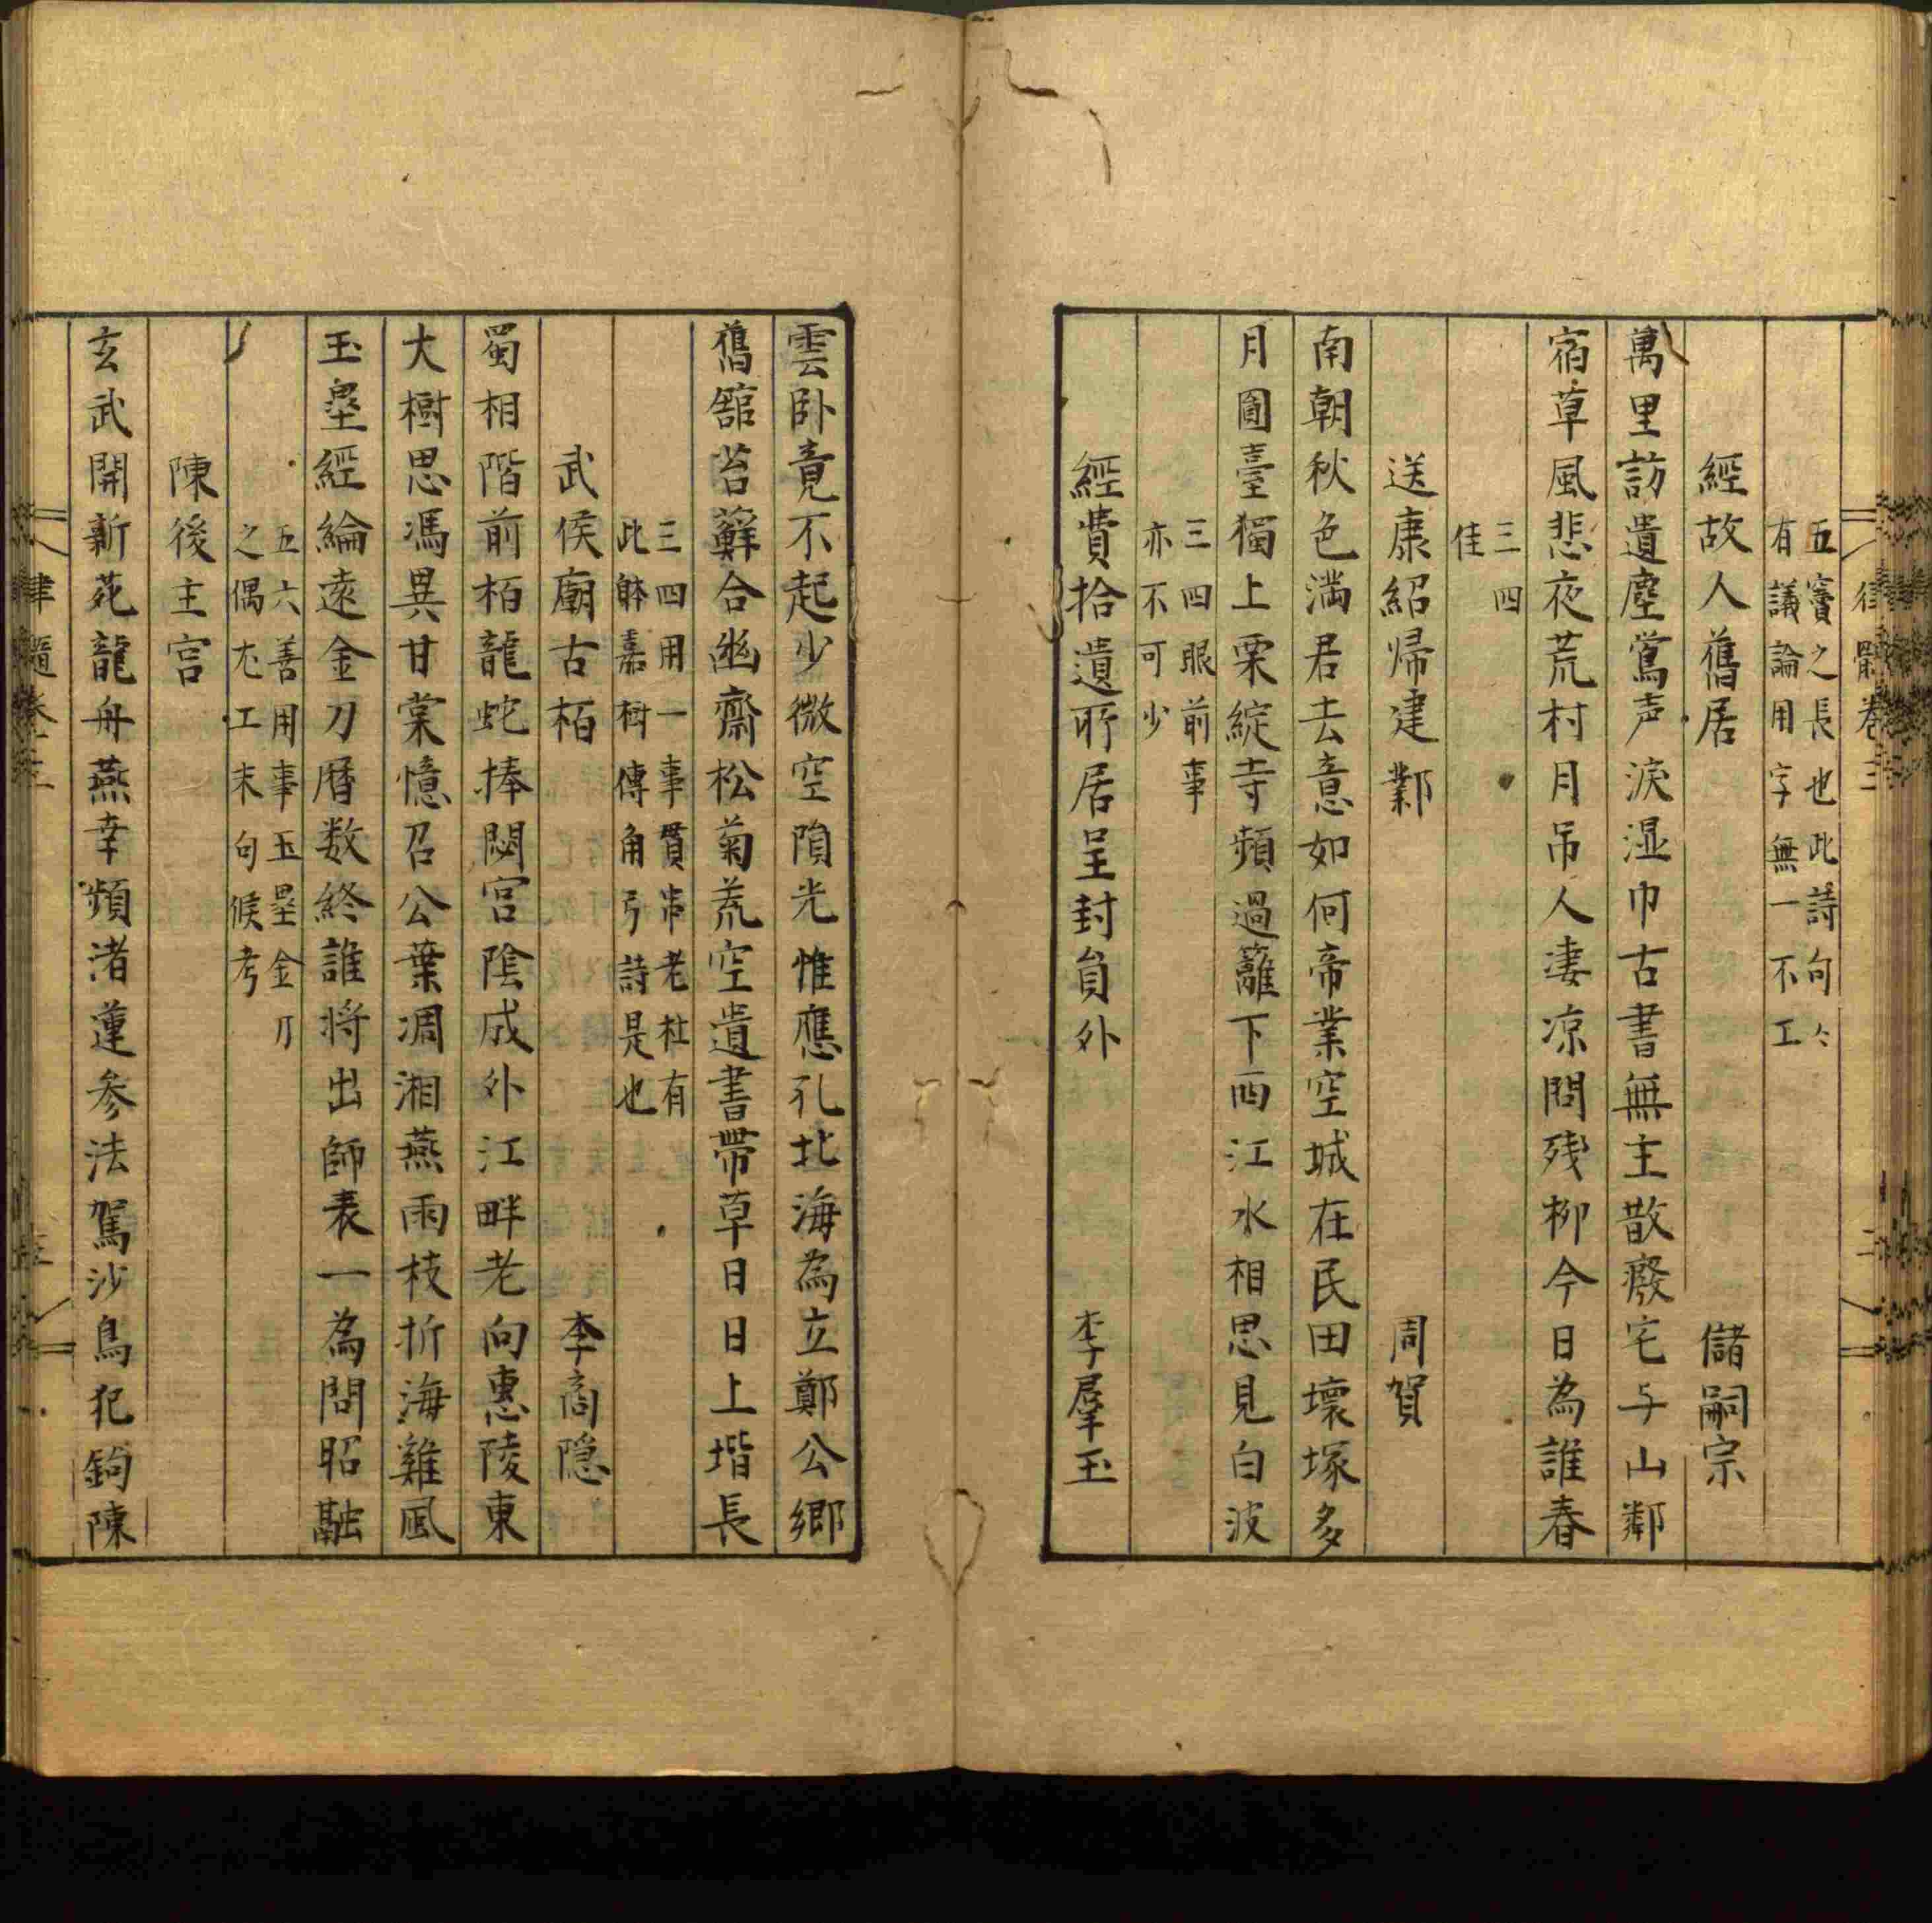 律髓卷三
二
五竇之長也此詩句〻
有議論用字無一不工
經故人舊居
儲嗣宗
萬里訪遺塵鶯声淚湿巾古書無主散癈宅与山鄰
宿草風悲夜荒村月吊人凄凉問残柳今日為誰春
三四
佳
送康紹帰建鄴
周賀
南朝秋色満君去意如何帝業空城在民田壞塚多
月圓臺獨上栗綻寺頻過籬下西江水相思見白波
三四眼前事
亦不可少
經費拾遺所居呈封貟外
李羣玉
雲卧竟不起少微空隕光惟應孔北海為立鄭公郷
舊舘苔蘚合幽齋松菊荒空遺書帶草日日上堦長
三四用一事貫串老杜有
此躰嘉樹傳角弓詩是也
武侯廟古栢
李商隠
蜀相階前栢龍蛇捧閟宮陰成外江畔老向惠陵東
大樹思馮異甘棠憶召公葉凋湘燕雨枝折海雞風
玉壘經綸遠金刀曆数終誰将出師表一為問昭融
五六善用事玉壘金刀
之偶尤工末句候考
陳後主宫
玄武開新苑龍舟燕幸頻渚蓮参法駕沙鳥犯鉤陳
律髓卷三